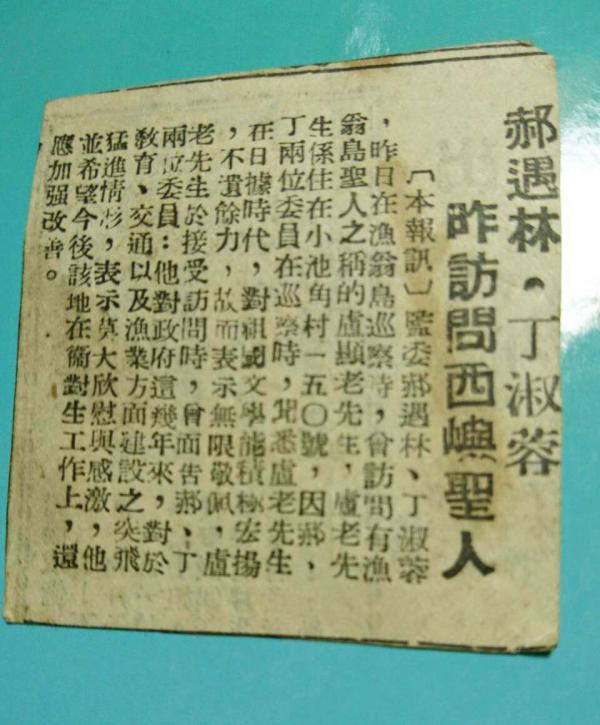 郝遇林・丁淑蓉
昨訪問西嶼聖人
〔本報訊〕監委郝遇林、丁淑蓉
，昨日在漁翁島巡察時，曾訪問有漁
翁島聖人之稱的盧顯老先生，盧老先
生係住在小池角村一五〇號，因郝、
丁兩位委員在巡察時，悉盧老先生
在日據時代，對祖國文學能積極宏揚
，不遺餘力，故而表示無限敬佩，盧
老先生於接受訪問時，曾面告郝、丁
兩位委員：他對政府這幾年來，對於
教育、交通以及漁業方面建設之突飛
猛進情形，表示莫大欣慰與感激，他
並希望今後該地在衞對生工作上，還
應加强改善。